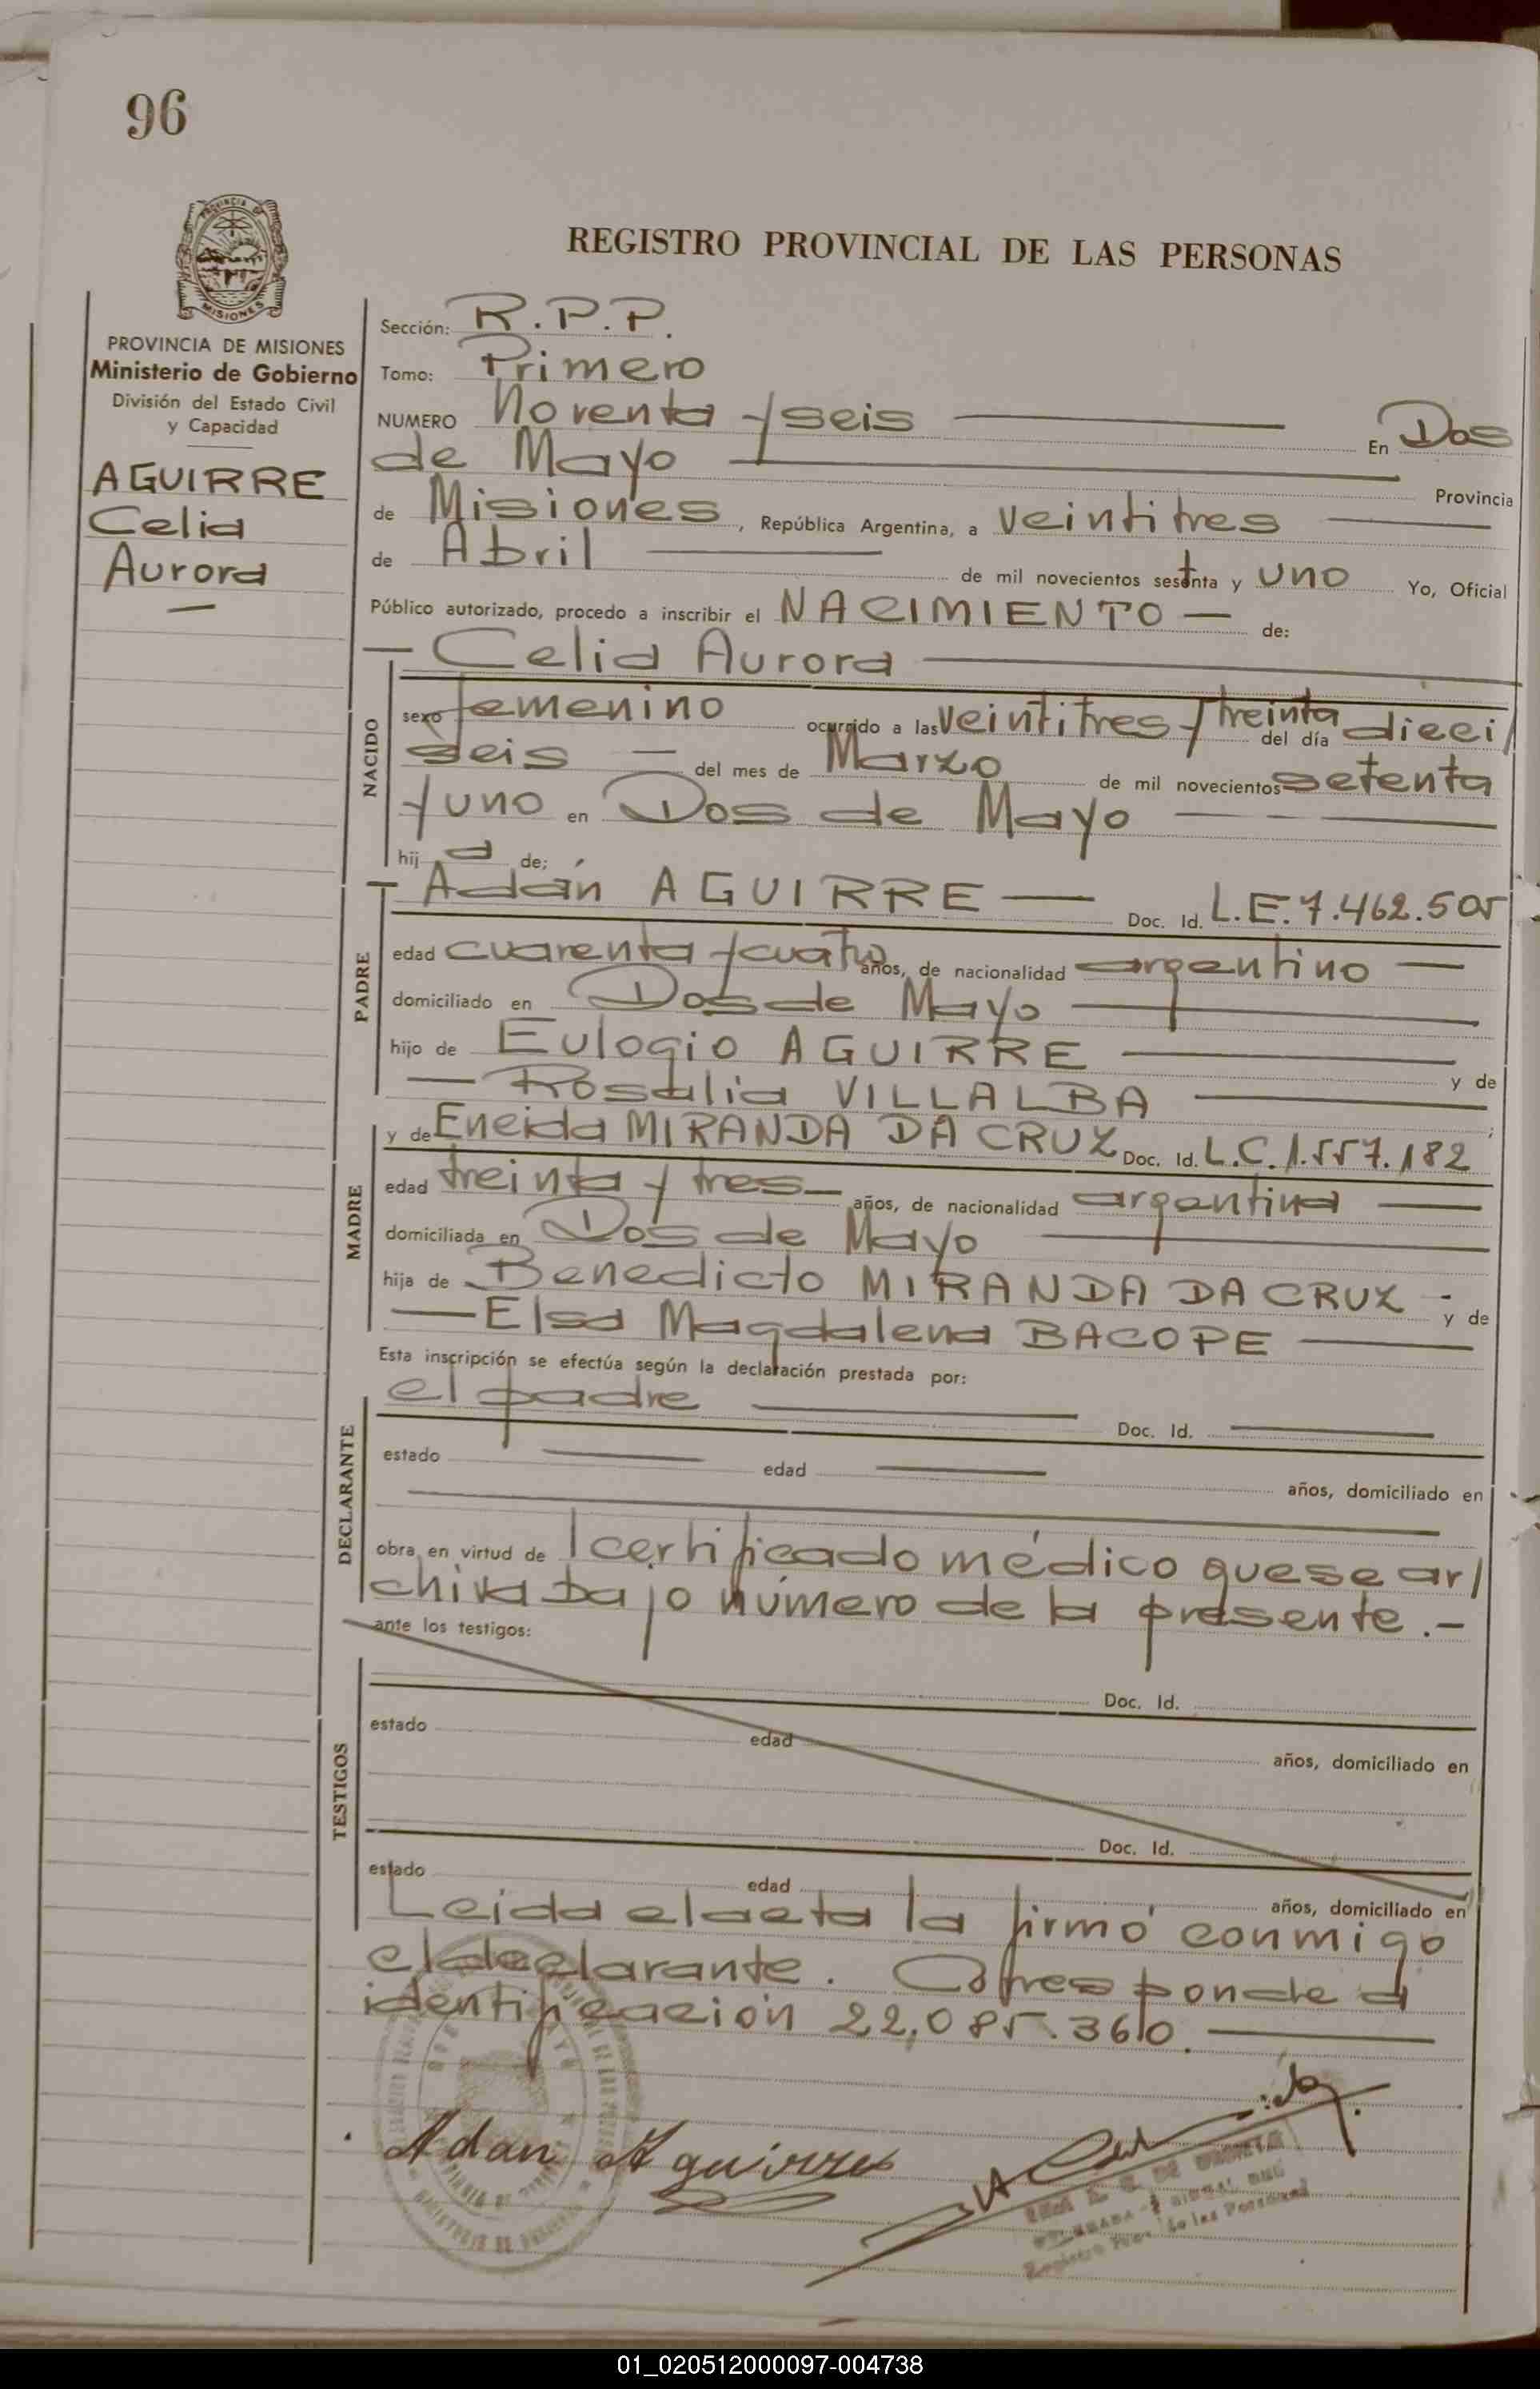 96
REGISTRO PROVINCIAL DE LAS PERSONAS
PROVINCIA DE MISIONES
Ministerio de Gobierno
División del Estado Civil
y Capacidad
AGUIRRE
Celia
Aurora
Sección: R.P.P.
Tomo: Primero
NUMERO Noventa y seis En Dos
de Mayo Provincia
de Misiones, República Argentina, a veintitres
de Abril de mil novecientos sesenta y uno Yo, Oficial
Público autorizado, procedo a inscribir el NACIMIENTO — de:
— Celia Aurora
NACIDO
sexo femenino ocurrido a las veintitres y treinta del día dieci/
seis — del mes de Marzo de mil novecientos setenta
y uno en Dos de Mayo
hij a de:
Adán AGUIRRE — Doc. Id. L.E. 7.462.505
PADRE
edad cuarenta y cuatro años, de nacionalidad argentino —
domiciliado en Dos de Mayo
hijo de Eulogio AGUIRRE y de
— Rosalia VILLALBA
MADRE
y de Eneida MIRANDA DA CRUZ Doc. Id. L.C. 1.557.182
edad treinta y tres — años, de nacionalidad argentina —
domiciliada en Dos de Mayo
hija de Benedicto MIRANDA DA CRUZ - y de
— Elsa Magdalena BACOPE
Esta inscripción se efectúa según la declaración prestada por:
el padre Doc. Id.
DECLARANTE
estado edad años, domiciliado en
obra en virtud de l certificado médico que se ar/
chiva bajo número de la presente.-
ante los testigos:
TESTIGOS
Doc. Id.
estado edad años, domiciliado en
Doc. Id.
estado edad años, domiciliado en
Leida el acta la firmó conmigo
el declarante. Corresponde a
identificación 22.085.360.
Adan Aguirre
Registro Prov. de las Personas
01_020512000097-004738